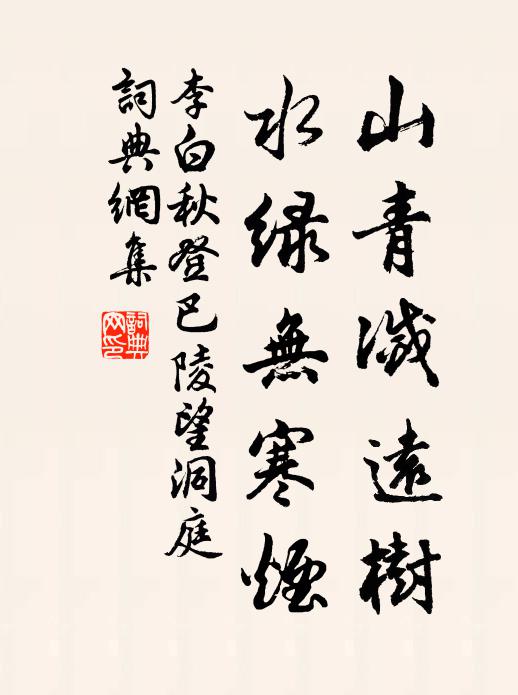 山青滅遠樹
水綠無寒煙
李白秋登巴陵望洞庭
詞典網集
詞典網印